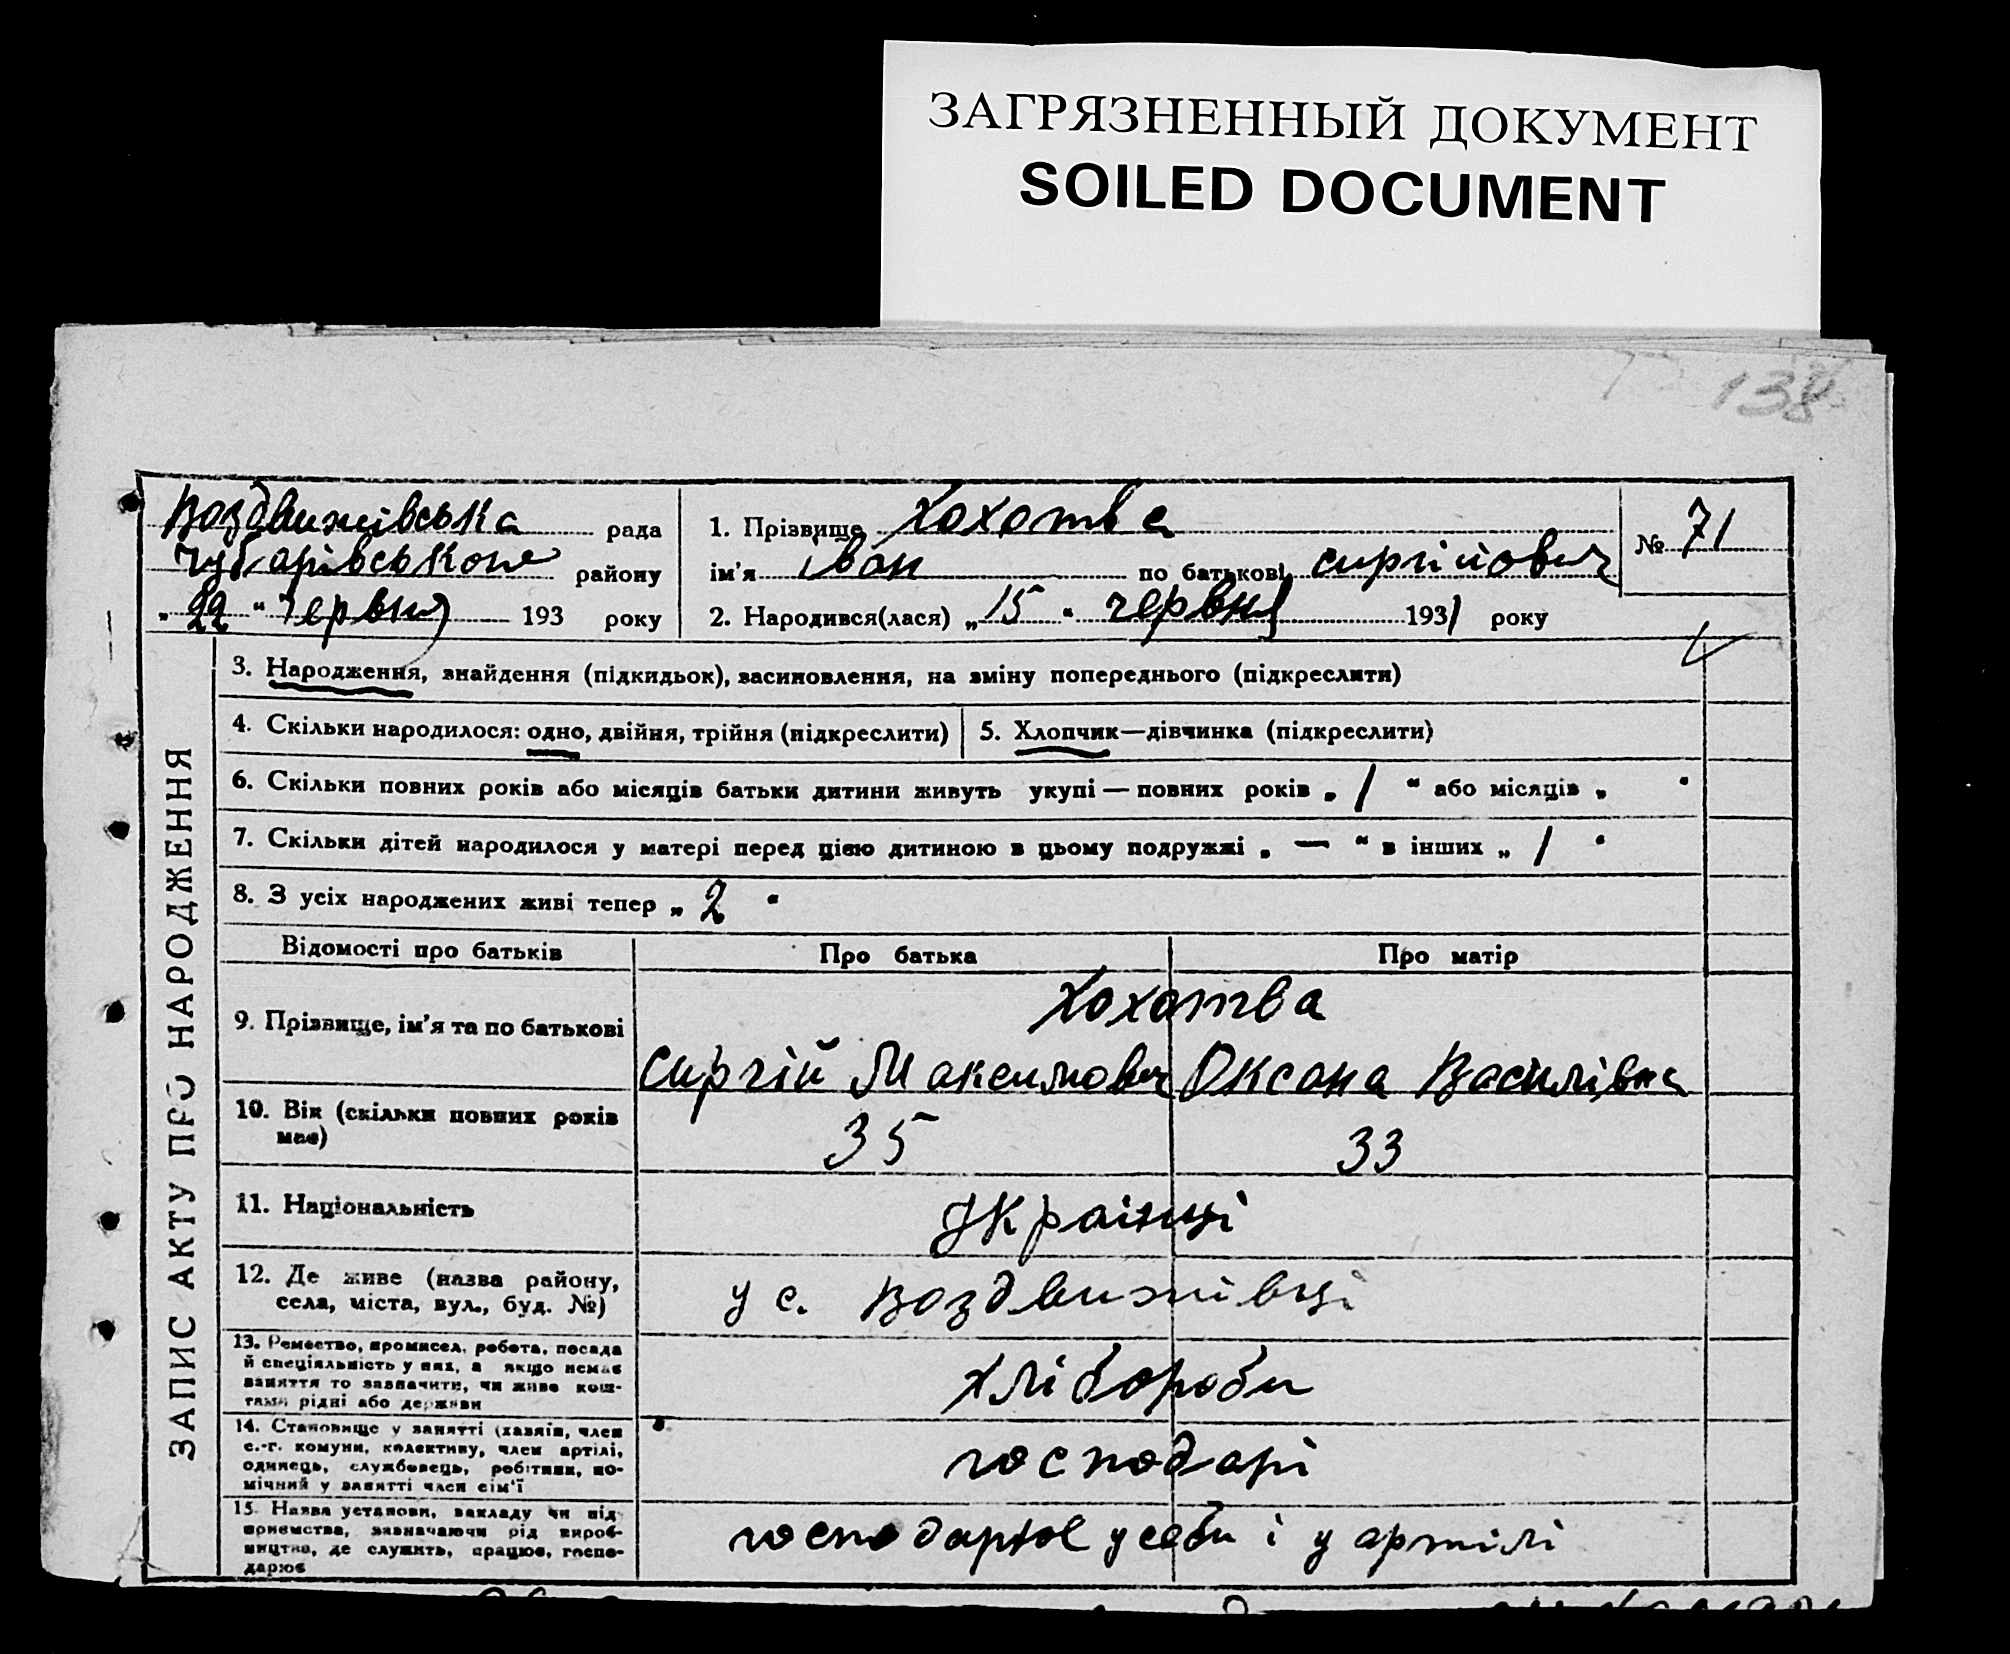 ЗАГРЯЗНЕННЫЙ ДОКУМЕНТ
SOILED DOCUMENT
138
Воздвижівська рада
Чубарівського району
„22“ червня 193 року
1. Прізвище Хохотва
ім’я Іван по батькові Сиргійович
2. Народився(лася) „15“ червня 1931 року
№ 71
ЗАПИС АКТУ ПРО НАРОДЖЕННЯ
3. Народження, знайдення (підкидьок), засиновлення, на зміну попереднього (підкреслити)
4. Скільки народилося: одно, двійня, трійня (підкреслити)
5. Хлопчик—дівчинка (підкреслити)
6. Скільки повних років або місяців батьки дитини живуть укупі — повних років „ 1 “ або місяців „ “
7. Скільки дітей народилося у матері перед цією дитиною в цьому подружжі „ — “ в інших „ 1 “
8. З усіх народжених живі тепер „ 2 “
Відомості про батьків Про батька Про матір
9. Прізвище, ім’я та по батькові
Хохотва
Сиргій Максимович Оксана Василівна
10. Вік (скільки повних років
має)
35 33
11. Національність
Українці
12. Де живе (назва району,
села, міста, вул., буд. №)
у с. Воздвижівці
13. Ремество, промисел, робота, посада
й спеціяльність у них, а якщо немає
заняття то зазначити, чи живе кош-
тами рідні або держави
хлібороби
14. Становище у занятті (хазяїн, член
с.-г. комуни, колективу, член артілі,
одинець, службовець, робітник, по-
мічний у занятті член сім’ї
господарі
15. Назва установи, закладу чи під-
приємства, зазначаючи рід вироб-
ництва, де служить, працює, госпо-
дарює
у себи і у артілі